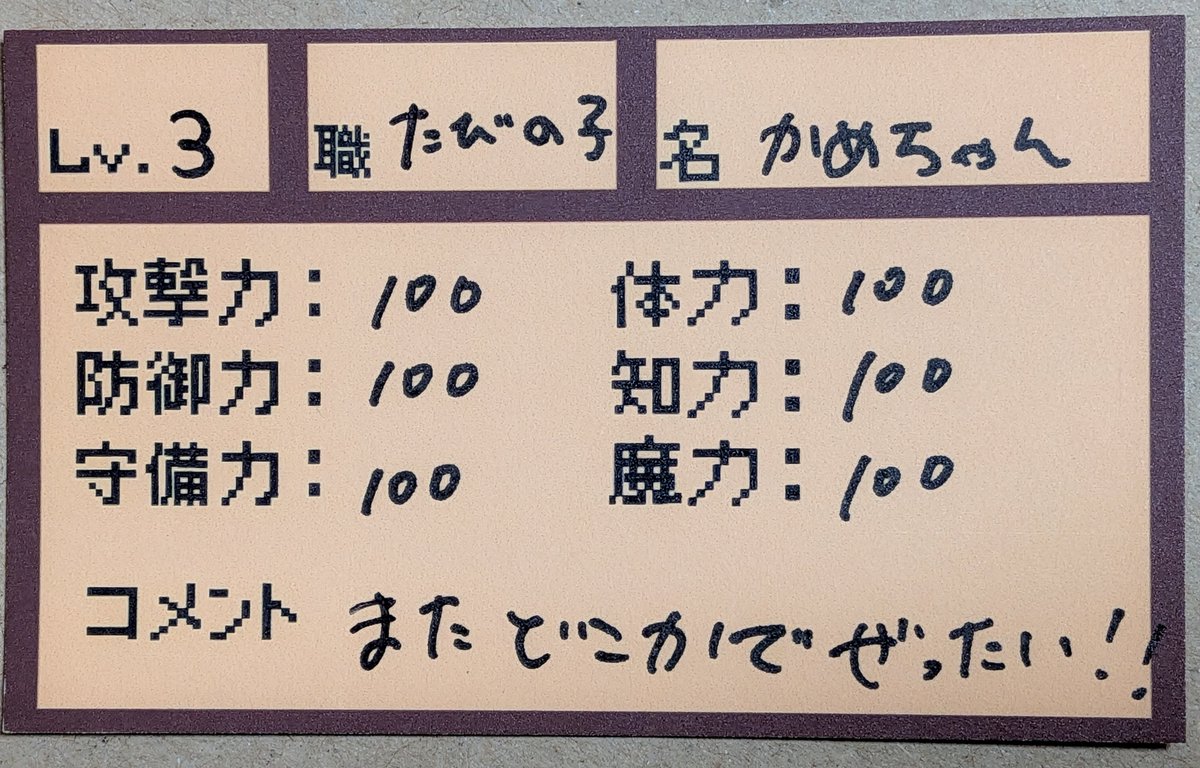 Lv. 3 職 たびの子 名 かめちゃん
攻撃力： 100 体力： 100
防御力： 100 知力： 100
守備力： 100 魔力： 100
コメント またどこかでぜったい！！